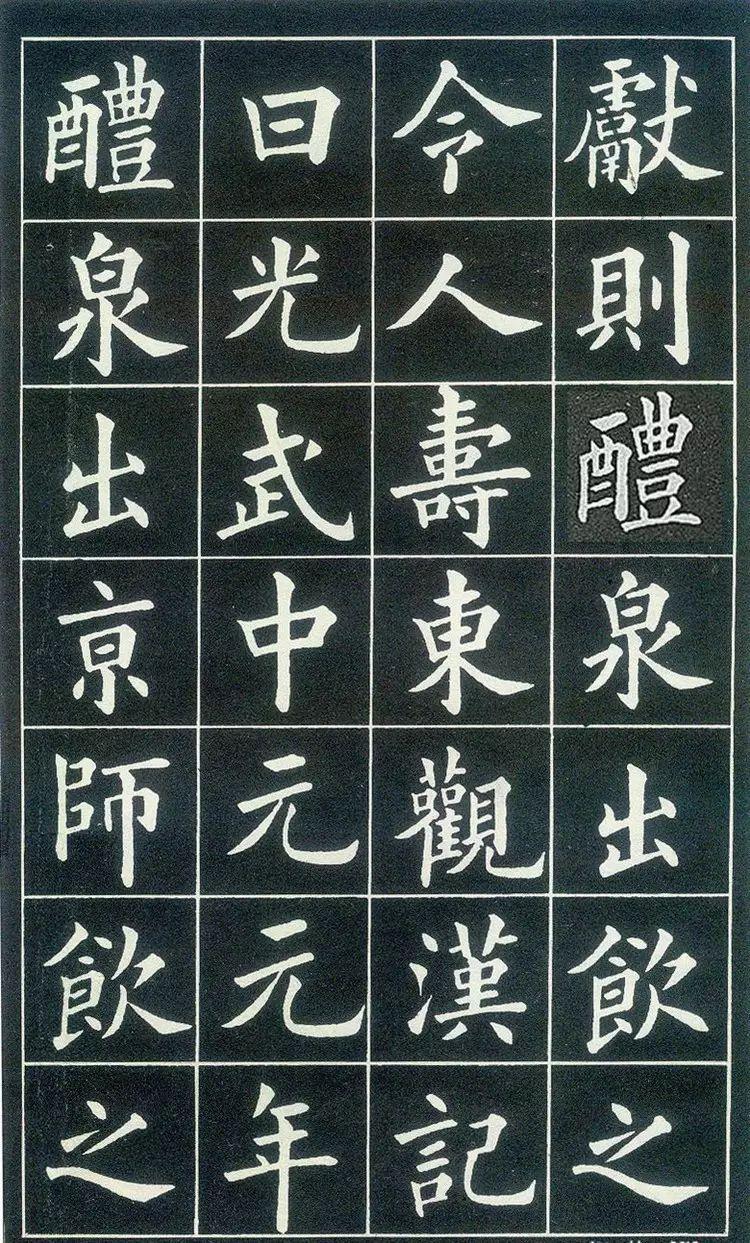 獻則醴泉出飲之
令人壽東觀漢記
曰光武中元元年
醴泉出京師飲之